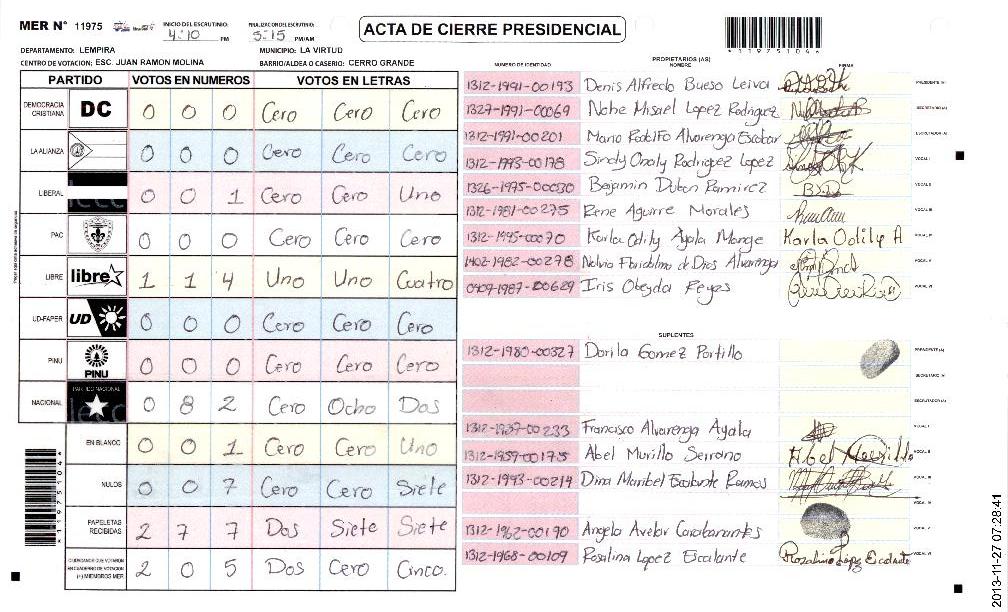 MER N° 11975
INICIO DEL ESCRUTINIO: 4:10 PM
FINALIZACION DEL ESCRUTINIO: 5:15 PM/AM
ACTA DE CIERRE PRESIDENCIAL
119751046
DEPARTAMENTO: LEMPIRA
MUNICIPIO: LA VIRTUD
CENTRO DE VOTACION: ESC. JUAN RAMON MOLINA
BARRIO/ALDEA O CASERIO: CERRO GRANDE
PARTIDO VOTOS EN NUMEROS VOTOS EN LETRAS
DEMOCRACIA CRISTIANA DC 0 0 0 Cero Cero Cero
LA ALIANZA 0 0 0 Cero Cero Cero
LIBERAL 0 0 1 Cero Cero Uno
PAC 0 0 0 Cero Cero Cero
LIBRE libre 1 1 4 Uno Uno Cuatro
UD-FAPER UD 0 0 0 Cero Cero Cero
PINU PINU 0 0 0 Cero Cero Cero
NACIONAL PARTIDO NACIONAL 0 8 2 Cero Ocho Dos
EN BLANCO 0 0 1 Cero Cero Uno
NULOS 0 0 7 Cero Cero Siete
PAPELETAS RECIBIDAS 2 7 7 Dos Siete Siete
CIUDADANOS QUE VOTARON EN CUADERNO DE VOTACION (+) MIEMBROS MER 2 0 5 Dos Cero Cinco.
119751046
NUMERO DE IDENTIDAD PROPIETARIOS (AS) NOMBRE FIRMA
1312-1991-00193 Denis Alfredo Bueso Leiva PRESIDENTE (A)
1327-1991-00069 Nohe Misael Lopez Rodriguez SECRETARIO (A)
1312-1991-00201 Mario Rodolfo Alvarenga Escobar ESCRUTADOR (A)
1312-1993-00178 Sindy Onaly Rodrigez Lopez VOCAL I
1326-1975-00030 Benjamin Dubon Ramirez VOCAL II
1312-1981-00275 Rene Aguirre Morales VOCAL III
1312-1995-00070 Karla Odily Ayala Monge Karla Odily A VOCAL IV
1402-1982-00278 de Dios Alvarenga VOCAL V
0409-1987-00629 Iris Obeyda Reyes VOCAL VI
SUPLENTES
1312-1980-00327 Dorila Gomez Portillo PRESIDENTE (A)
SECRETARIO (A)
ESCRUTADOR (A)
1312-1937-00233 Francisco Alvarenga Ayala VOCAL I
1312-1959-00175 Abel Murillo Serrano Abel Murillo VOCAL II
1312-1993-00214 Dina Maribel Escalante Ramos VOCAL III
VOCAL IV
1312-1962-00190 Angela Avelar VOCAL V
1312-1968-00109 Rosalina Lopez Escalante Rosalina López Escalante VOCAL VI
2013-11-27 07:28:41